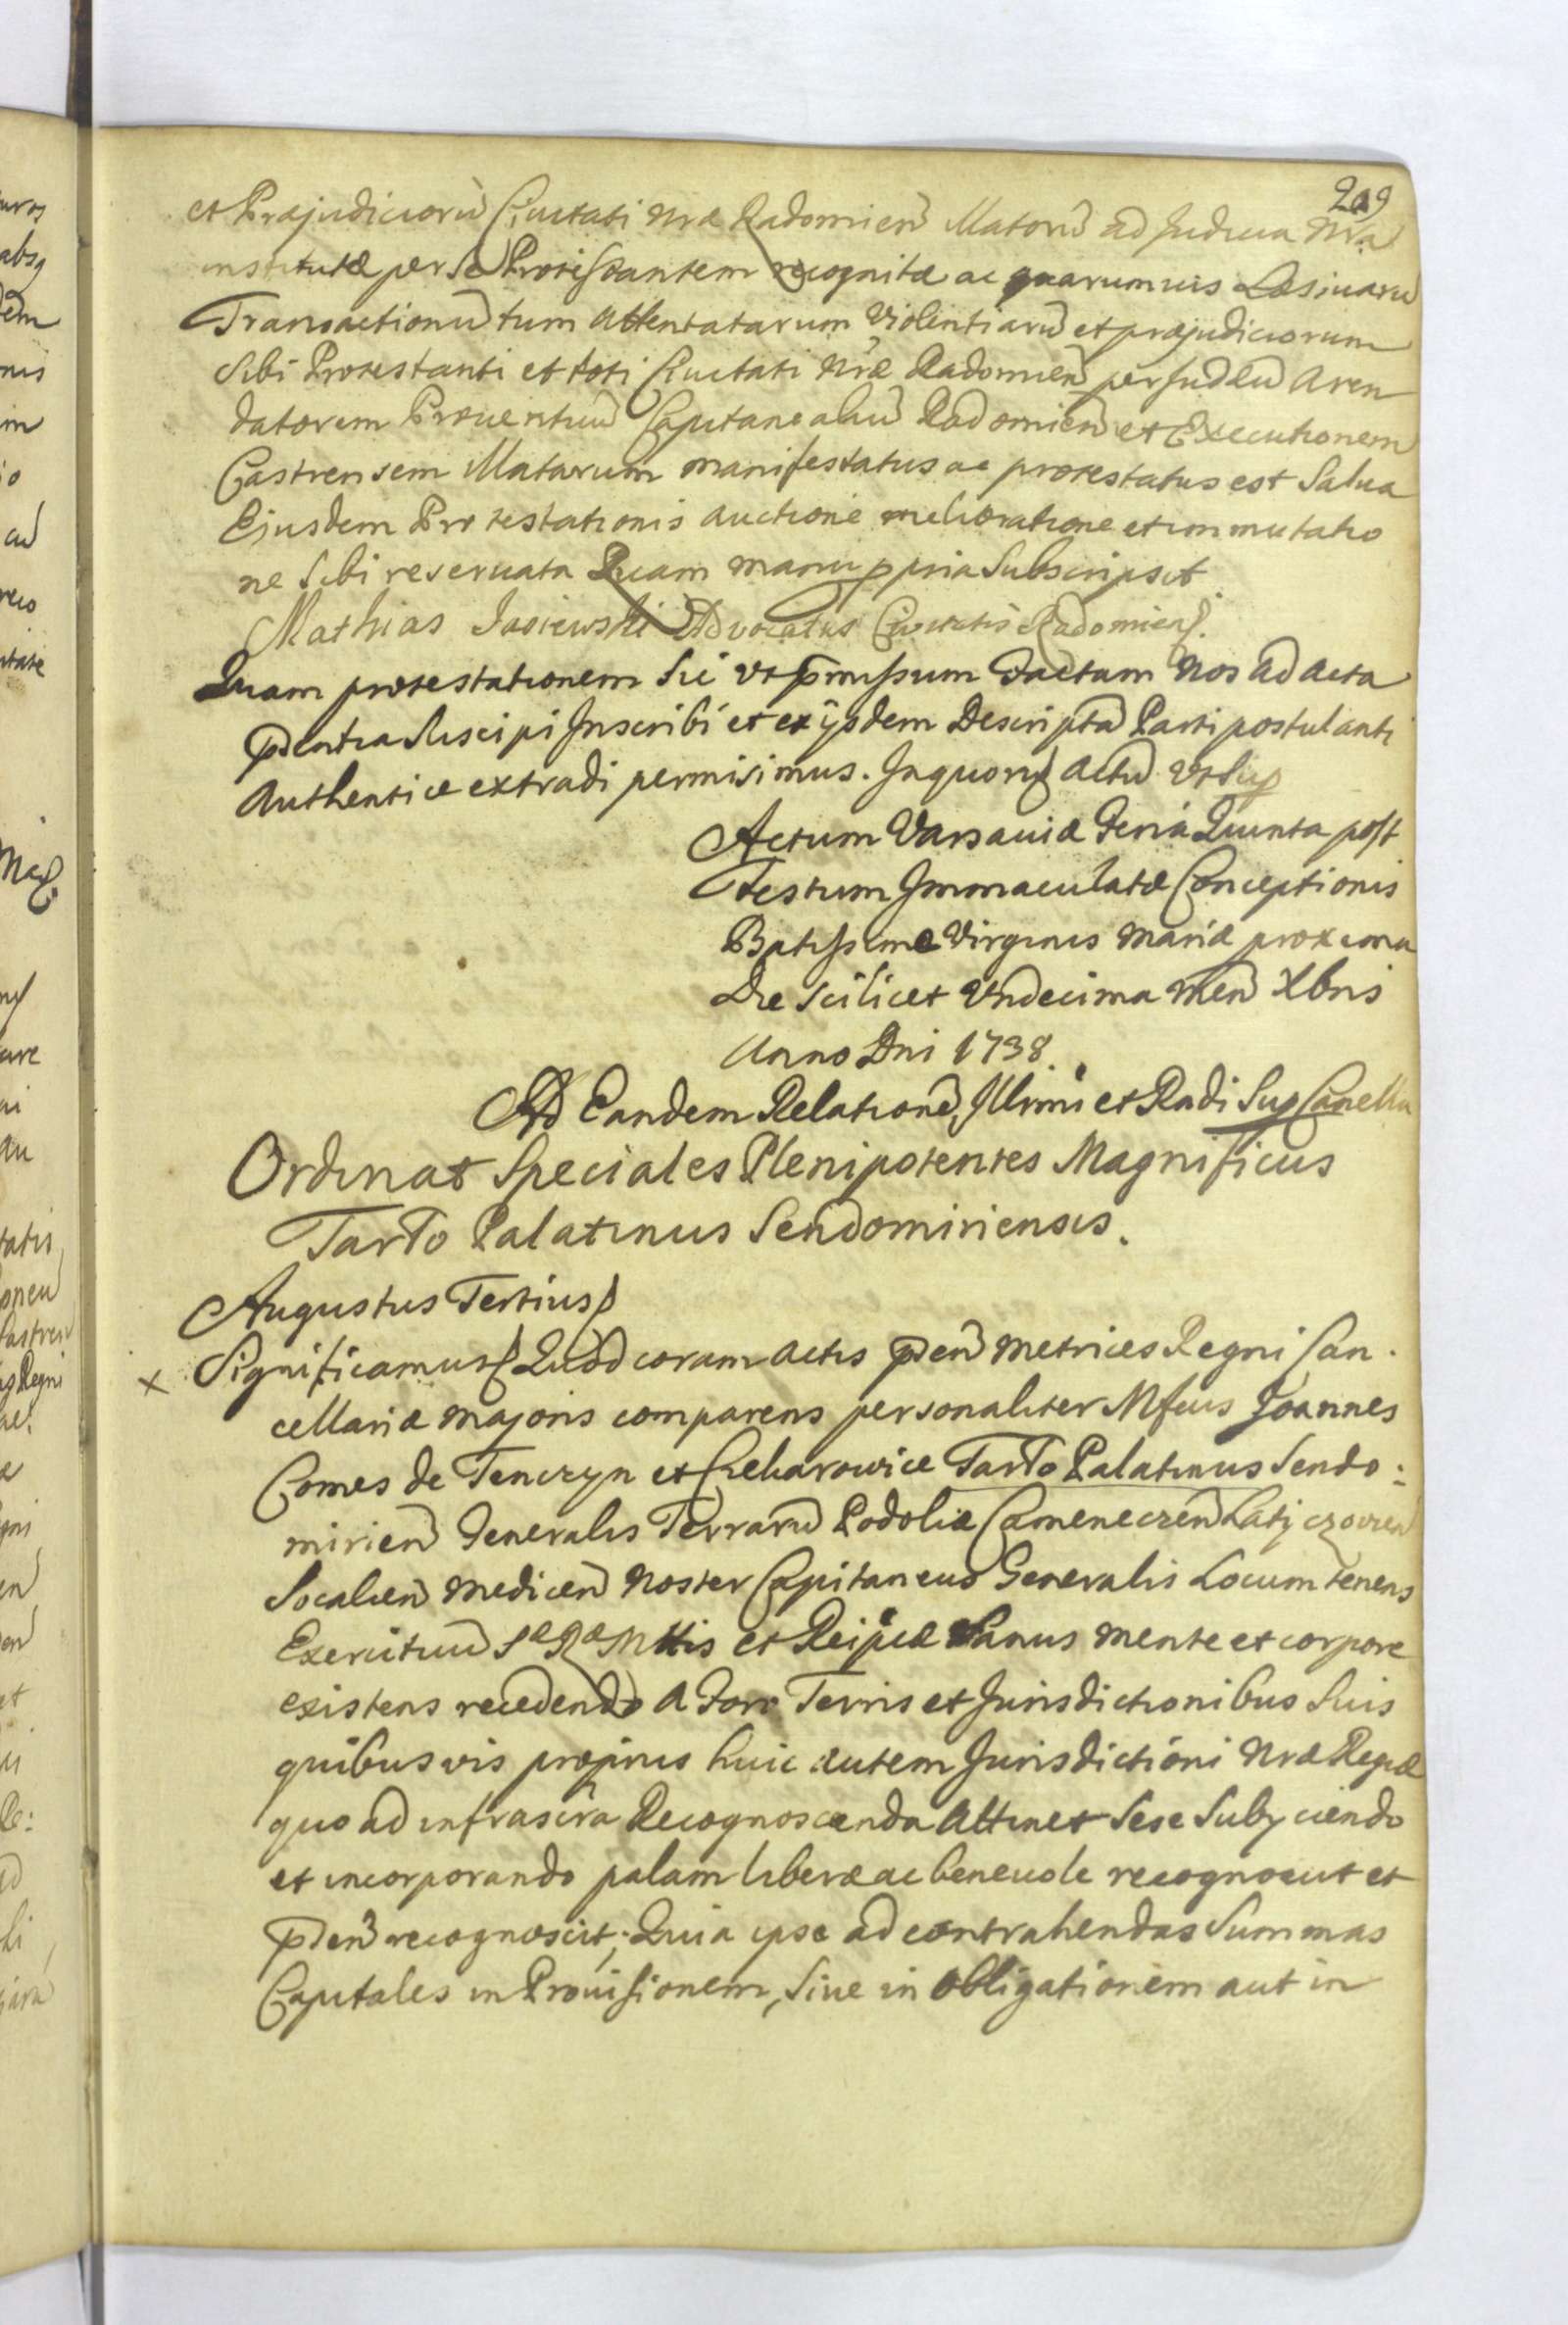 209
et Præjudiciorũ Civitati Nræ Radomień Illatorũ ad Judicia Nrã
institutæ per se Protestantem recognitæ ac quarumvis Læsivarũ
Transactionũ tum Attentatarum Violentiarũ et præjudiciorum
Sibi Protestanti et toti Civitati Nræ Radomień per Judæũ Aren
datorem Proventuũ Capitanealiũ Radomień et Executionem
Castrensem Illatarum manifestatus ac protestatus est Salva
Ejusdem Protestationis auctione melioratione et immutatio
ne Sibi reservata Quam manu ppria Subscripsit
Mathias Jasiewski Advocatus Civitatis Radomień.
Quam protestationem Sic ut pmissum Factam Nos ad Acta
pdentia Suscipi Inscribi et ex ijsdem Descriptã Parti postulanti
Authentice extradi permisimus. In quorũ Actũ Ut Sup
Actum Varsaviæ Feria Quinta post
Festum Immaculatæ Conceptionis
Btissimæ Virginis Mariæ proxima
Die scilicet Undecima Meñ Xbris
Anno Dni 1738.
Ad Eandem Relationẽ Illrmi et Rndi Sup Cancella
Ordinat Speciales Plenipotentes Magnificus
Tarło Palatinus Sendomiriensis.
Augustus Tertius
x Significamus Quod coram Actis pdeñ Metrices Regni Can
cellariæ Majoris comparens personaliter Mfcus Joannes
Comes de Tenczyn et Czekarowice Tarło Palatinus Sendo:
mirień Generalis Terrarũ Podoliæ Camenecień Latyczovień
Socalień Medicen Noster Capitaneus Generalis Locum tenens
Exercituũ Sæ Ræ Mttis et Reipcæ Sanus mente et corpore
existens recedendo A Foro Terris et Jurisdictionibus Suis
quibusvis proprijs huic autem Jurisdictioni Nræ Regiæ
quo ad infrascra Recognoscenda Attinet Sese Subijciendo
et incorporando palam libere ac benevole recognovit et
pdeñ recognoscit; Quia ipse ad contrahendas Summas
Capitales in Provisionem, Sive in Obligationem aut in